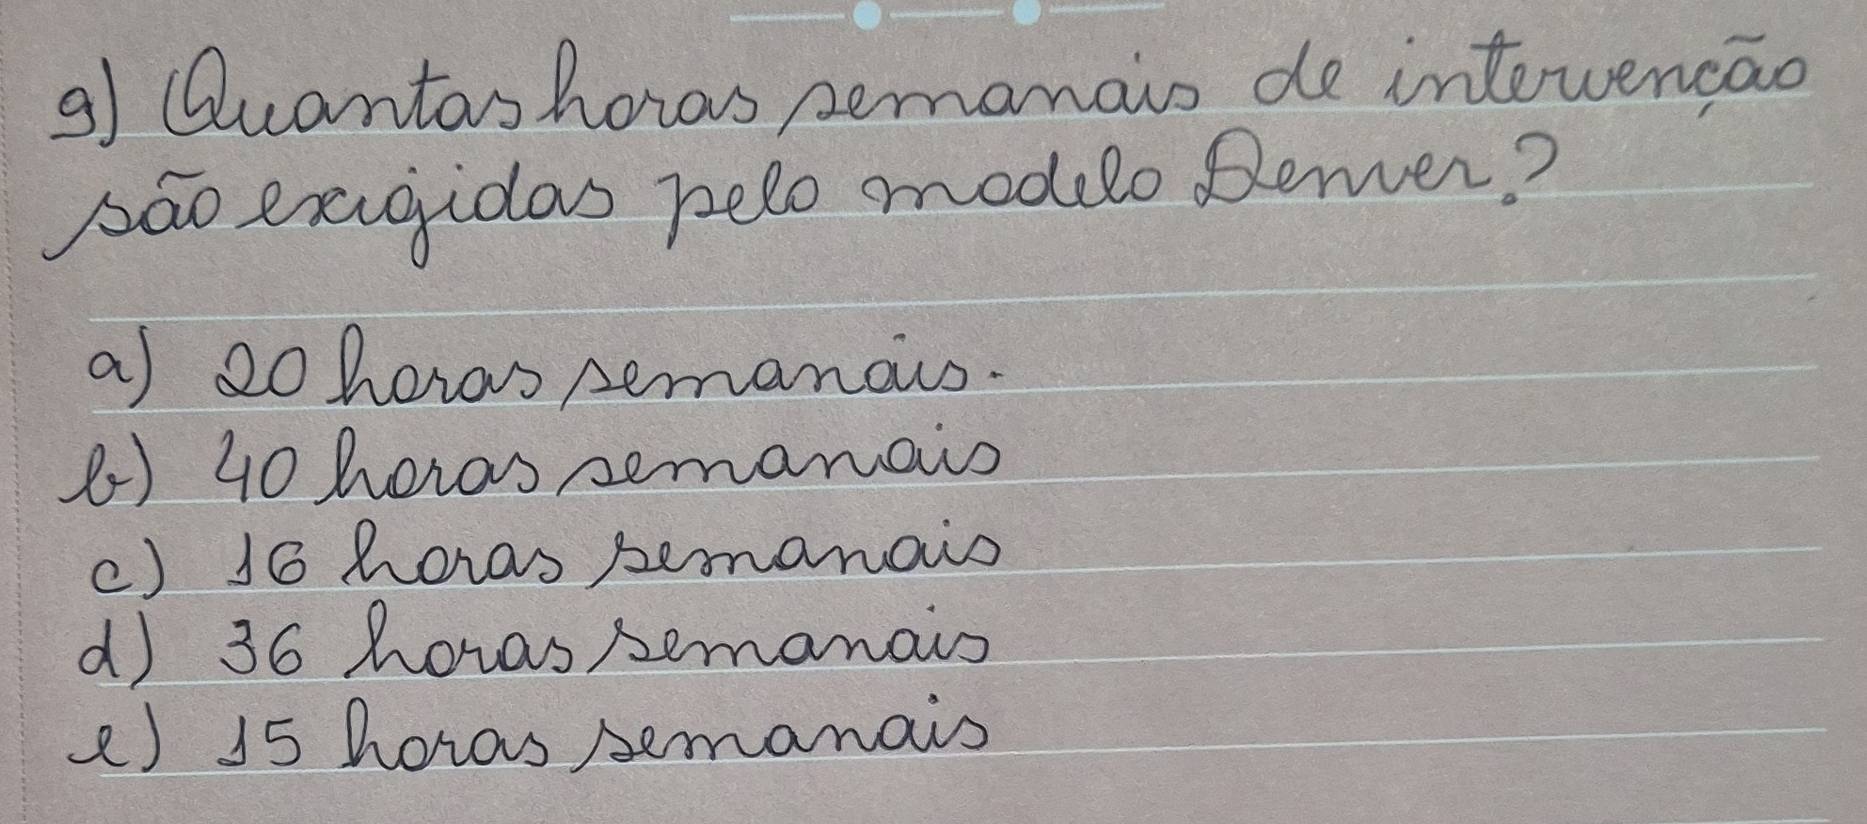 9) Quantas horas semanais de intervenção
são exigidas pelo modelo Denver?
a) 20 horas semanais.
b) 40 horas semanais
c) 16 horas semanais
d) 36 horas semanais
e) 15 horas semanais